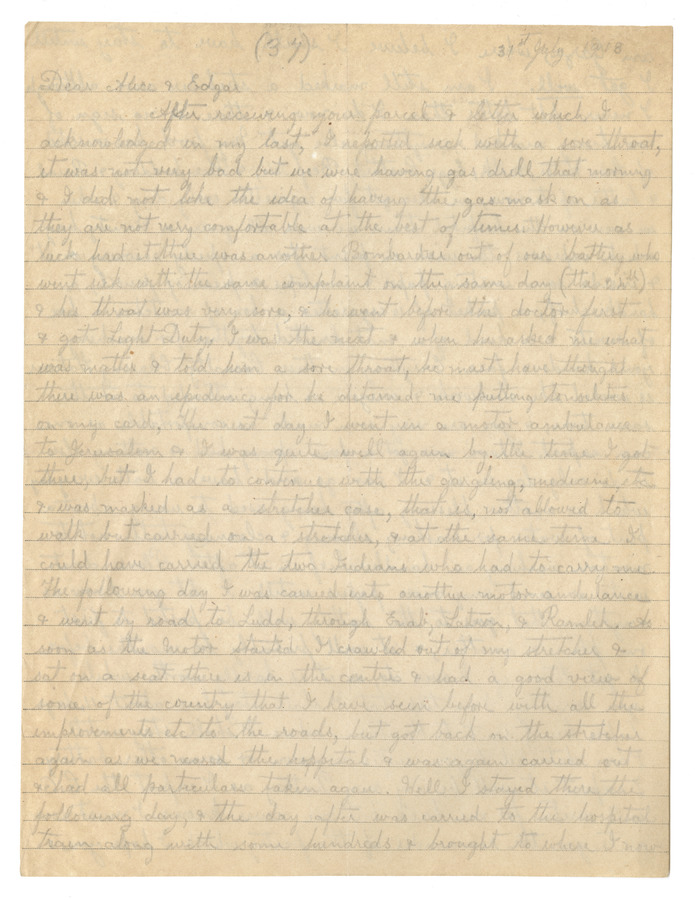 (37) 31st July 1918
Dear Alice & Edgar
After receiving your parcel & letter which I
acknowledged in my last, I reported sick with a sore throat,
it was not very bad but we were having gas drill that morning
& I did not like the idea of having the gas mask on as
they are not very comfortable at the best of times. However as
luck had it there was another Bombardier out of our battery who
went sick with the same complaint on the same day (the
& his throat was very sore, & he went before the doctor first
& got Light Duty, I was the next & when he asked me what
was matter & told him a sore throat, he must have thought
there was an epidemic for he detained me putting tonsilitis
on my card, The next day I went in a motor ambulance
to Jerusalem & I was quite well again by the time I got
there, but I had to continue with the gargling, medicine etc
& was marked as a stretcher case, that is, not allowed to
walk but carried on a stretcher, & at the same time I
could have carried the two Indians who had to carry me.
The following day I was carried into another motor ambulance
& went by road to Ludd, through Enab, Latron, & Ramleh, As
soon as the motor started I crawled out of my stretcher &
sat on a seat there is in the centre & had a good view of
some of the country that I have seen before with all the
improvements etc to the roads, but got back on the stretcher
again as we neared the hospital & was again carried out
& had all particulars taken again. Well I stayed there the
following day, & the day after was carried to the hospital
train along with some hundreds & brought to where I now